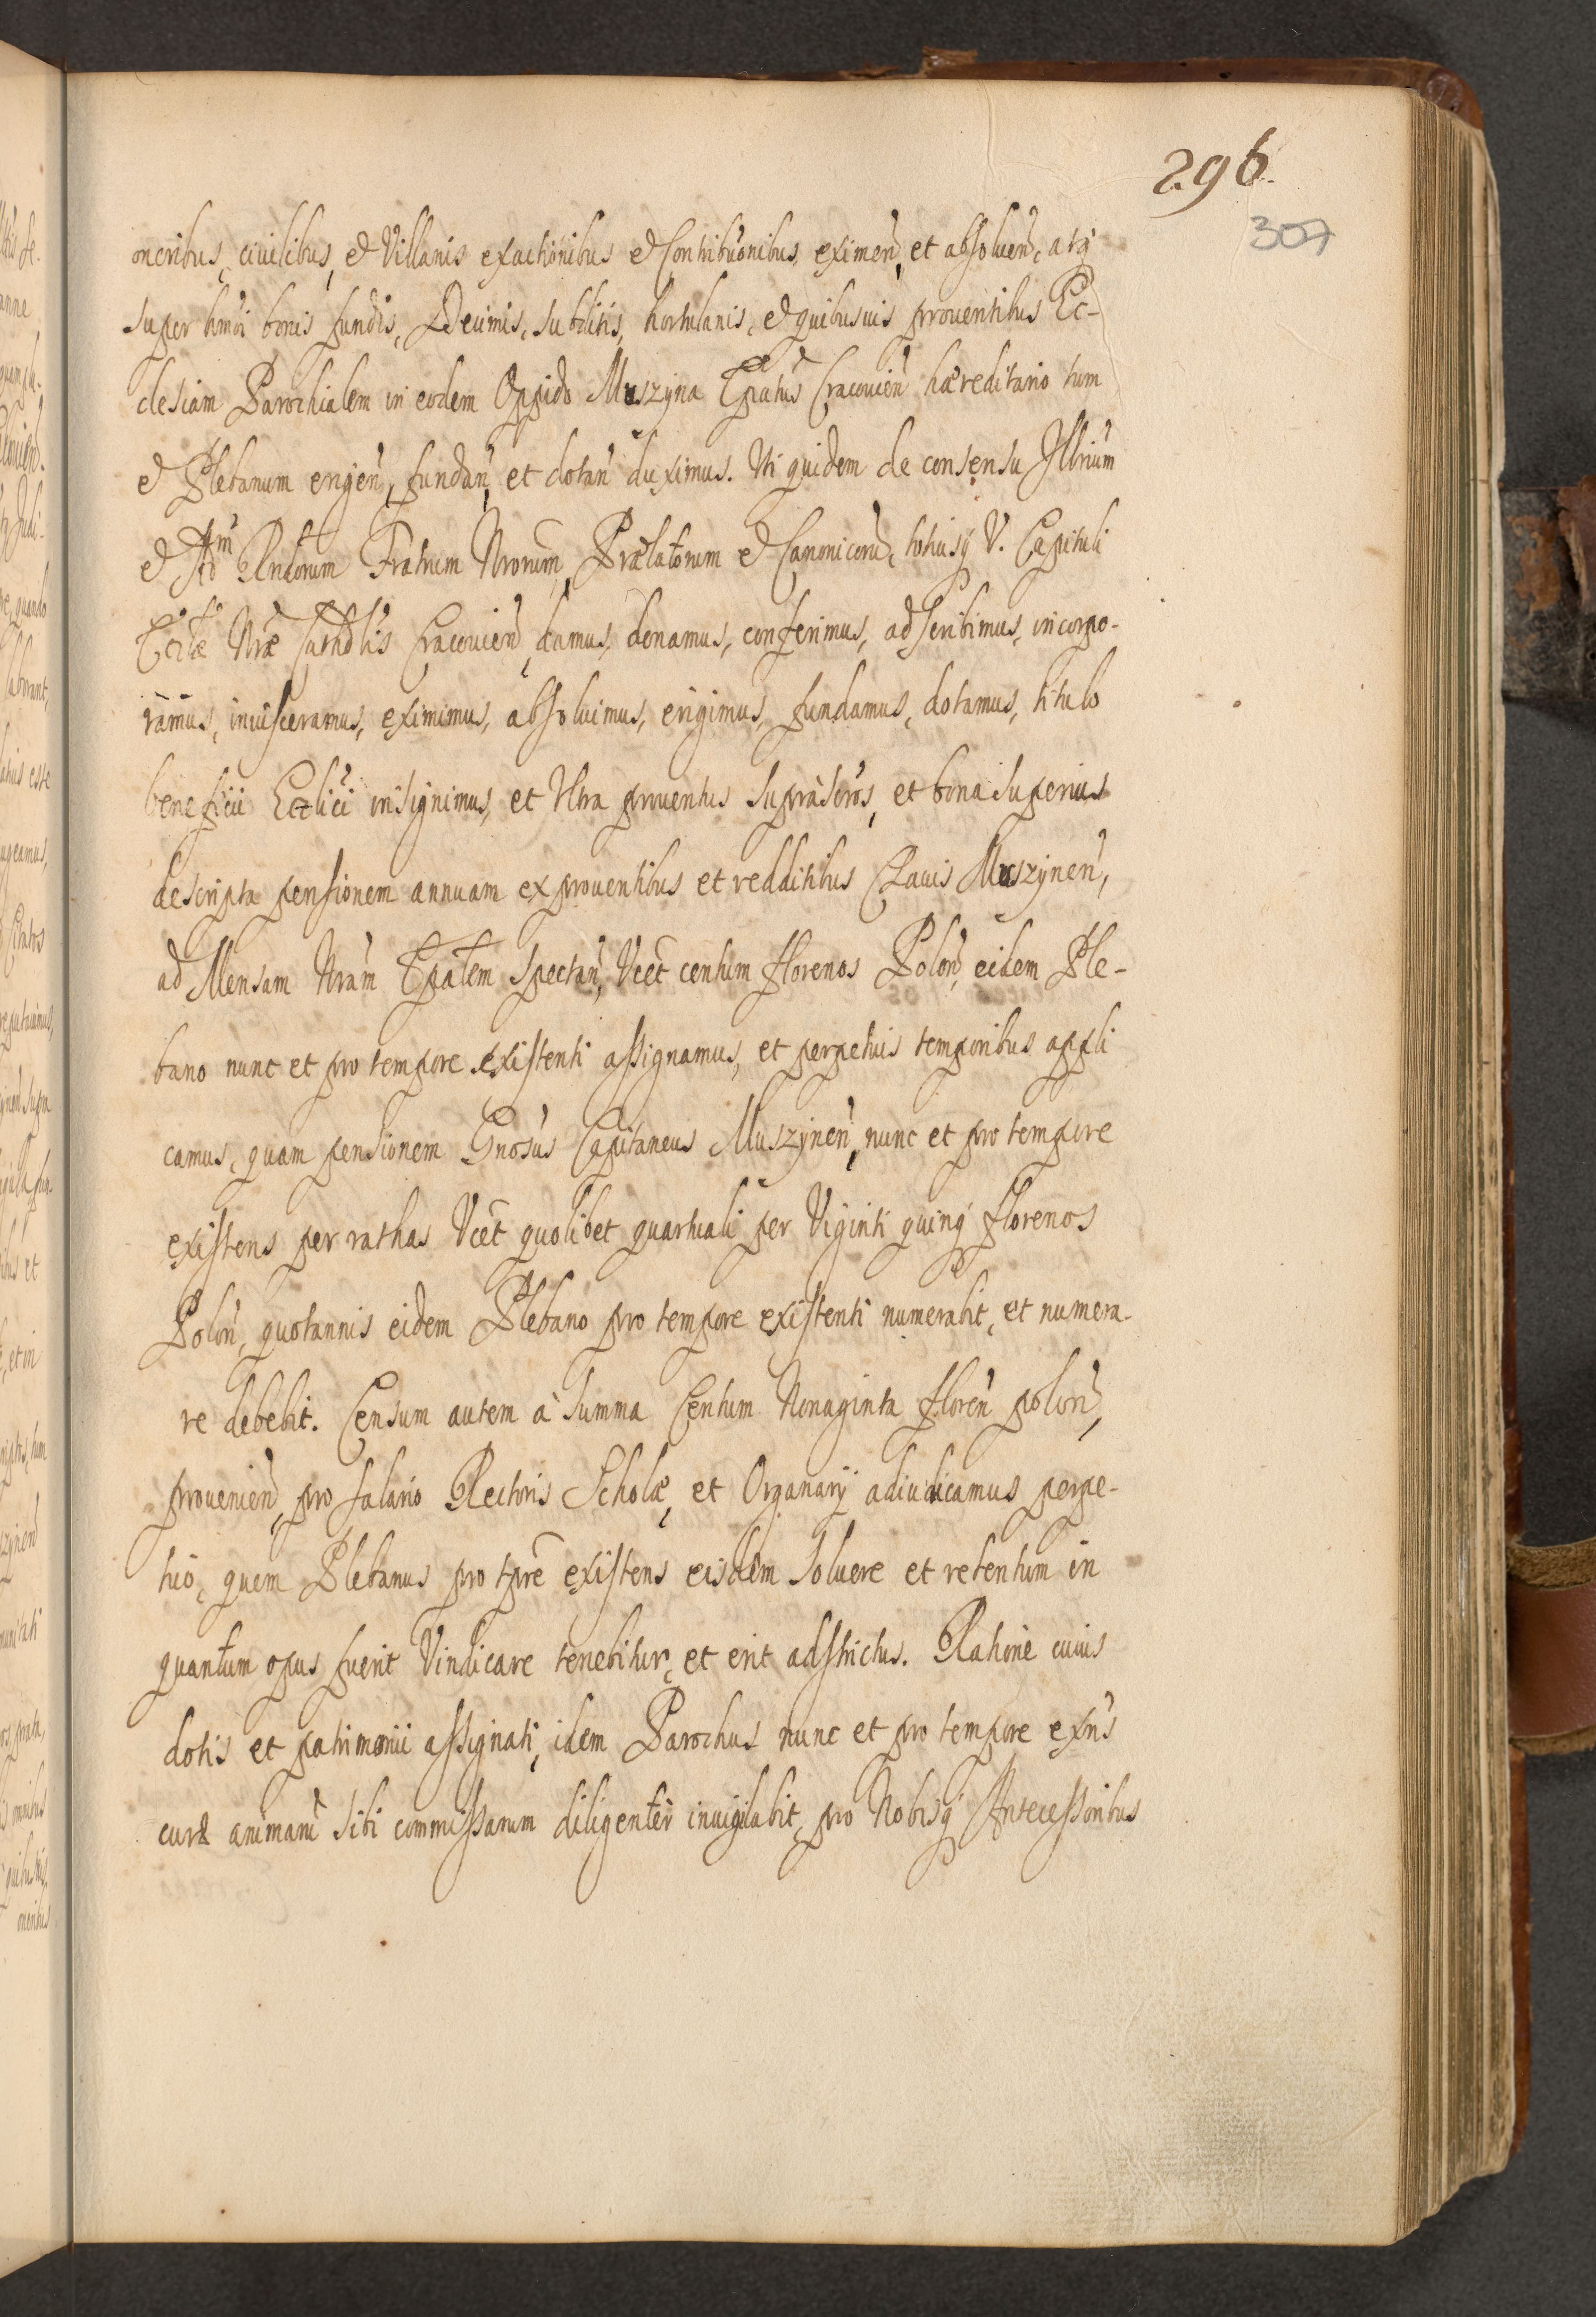 296.
307
oneribus, ciuilibus, et Villanis exactionibus et Contribuonibus eximen, et absoluen, atq
super hmoi bonis fundis, Decimis, subditis, hortulanis, et quibusuis prouentibus Ec-
clesiam Parochialem in eodem Oppido Muszyna Epatus Cracouien hæreditario tum
et Plebanum erigen, fundan, et dotan duximus. Uti quidem de consensu Illrium
et Adm Rndorum Fratrum Nrorum, Prælatorum et Canonicoru, totiusq V. Capituli
Eccliæ Nræ Cathdlis Cracouien, damus, donamus, conferimus, adscribimus, incorpo-
ramus, inuisceramus, eximimus, absoluimus, erigimus, fundamus, dotamus, titulo
beneficii Ecclici insignimus, et Ultra prouentus supràscros, et bona superius
descripta pensionem annuam ex prouentibus et redditibus Clauis Muszynen,
ad Mensam Nram Epalem spectan, Vcet centum florenos Polon, eidem Ple-
bano nunc et pro tempore existenti assignamus, et perpetuis temporibus appli
camus, quam pensionem Gnosus Capitaneus Muszynen, nunc et pro tempore
existens per rathas Vcet quolibet quartuali per Viginti quinq florenos
Polon, quotannis eidem Plebano pro tempore existenti numerabit, et numera-
re debebit. Censum autem à summa Centum Nonaginta floren polon,
prouenien, pro salario Rectoris Scholæ, et Organarÿ adiudicamus perpe-
tuo, quem Plebanus pro tpre existens eisdem soluere et retentum in
quantum opus fuerit Vindicare tenebitur, et erit adstrictus. Ratione cuius
dotis et patrimonii assignati, idem Parochus nunc et pro tempore exns
curæ animaru sibi commissarum diligenter inuigilabit, pro Nobisq Antecessoribus